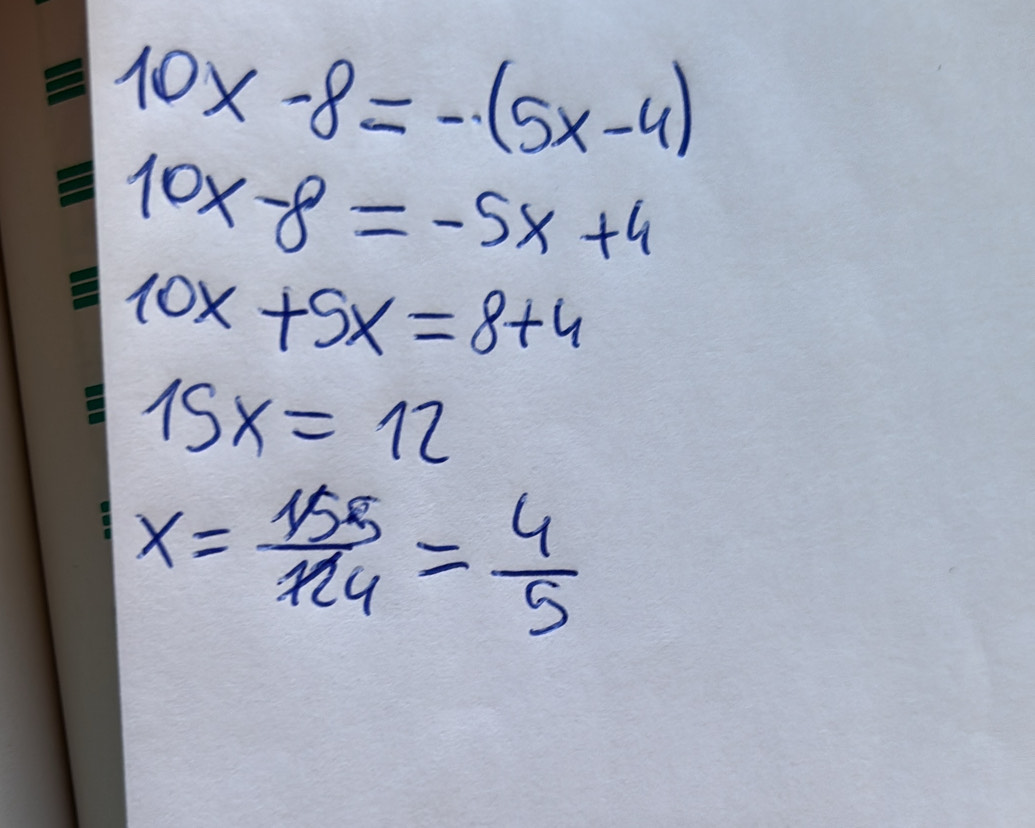 10x - 8 = -(5x - 4)
10x - 8 = -5x + 4
10x + 5x = 8 + 4
15x = 12
x = 15 5 / 12 4 = 4/5